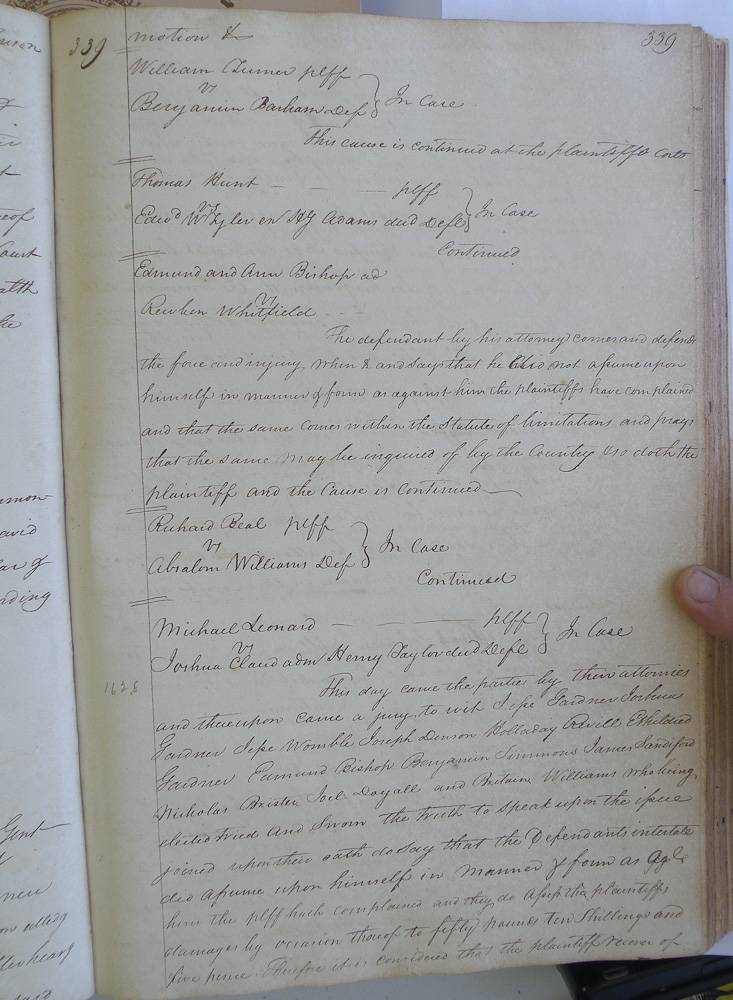 339
339
motion &
William Turner plff
vs
Benjamin Barham Def } In Case
This cause is continued at the plaintiffs Costs
Thomas Hunt — — — plff
vs
Edwd Wm Tyler ex HJ Adams decd Defe } In Case
Continued
Edmund and Ann Bishop ad
vs
Reuben Whitfield - - -
The defendant by his attorney comes and defends
the force and injury when & and says that he did not assume upon
himself in manner & form as against him the plaintiffs have complained
and that the same comes within the Statute of limitations and prays
that the same may be inquired of by the Country & so doth the
plaintiff and the Cause is Continued
Richard Beal plff
vs
Absalom Williams Def } In Case
Continued
Michael Leonard — — plff
vs
Joshua Claud adm Henry Taylor decd Defe } In Case
1628
This day came the parties by their attornies
and thereupon came a jury to wit Jesse Gardner Joshua
Gardner Jesse Womble Joseph Denson Holladay Revell Etheldred
Gardner Edmund Bishop Benjamin Simmons James Sandiford
Nicholas Brister Joel Dayall and Britain Williams who being
elected tried and Sworn the truth to Speak upon the issue
joined upon their oath do Say that the Defendants intestate
did assume upon himself in manner & form as
him the plff hath complained and they do assess the plaintiffs
damages by occasion thereof to fifty pounds ten Shillings and
five pence. Therefore it is considered that the plaintiff recover of
Court
Gent
David